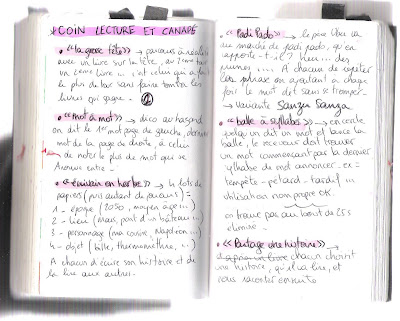 COIN LECTURE ET CANAPÉ
• « la grosse tête » → parcours à réaliser
avec un livre sur la tête, au 2eme tour
un 2eme livre ... c'est celui qui a fait
le plus de tas sans faire tomber les
livres qui gagne -
• « mot à mot » → dico au hasard
on dit le 1er mot page de gauche, dernier
mot de la page de droite, à celui
de noter le plus de mot qui se
trouve entre -
• « écrivain en herbe » → 4 lots de
papiers (puis autant de joueurs) =
1 - époque (2050, moyen âge ...)
2 - lieu (mars, pont d'un bâteau ...)
3 - personnage (ma cousine, Napoléon ...)
4 - objet (bille, thermomètre, ...)
A chacun d'écrire son histoire et de
la lire aux autres.
• « Padi Pado » → le père Ubu va
au marché de padi pado, qu'en
rapporte-t-il ? heu ... des
... A chacun de répéter
les phrase en ajoutant à chaque
fois le mot det sans se tromper
→ variante Sanzu Sanza
• « balle à syllabes » → en cercle
quelqu'un dit un mot et lance la
balle, le receveur doit trouver
un mot commençant par la dernier
syllabe de mot annoncer. ex =
tempête - pétard - tardif ...
utilisation nom propre OK.
en trouve pas au bout de 25s
éliminé -
• « Partage une histoire » →
chacun choisit
une histoire, qu'il va lire, et
vous raconter ensuite